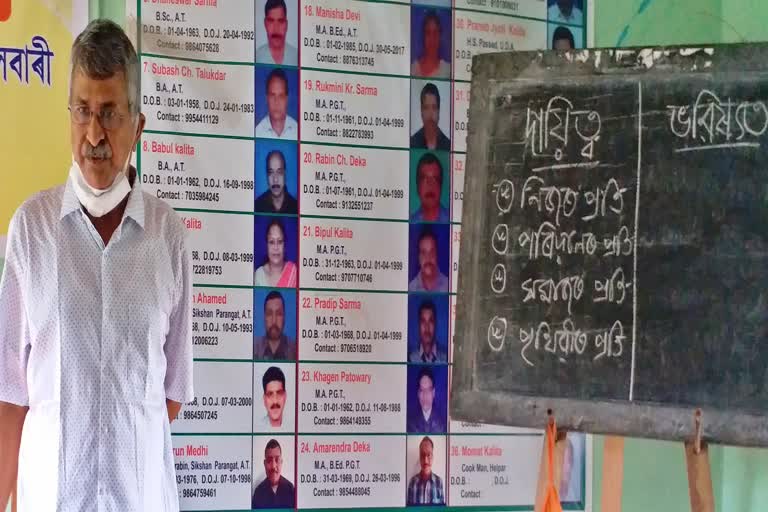 নবাৰী
B.Sc., A.T.
D.O.B. : 01-04-1963, D.O.J. 20-04-1992
Contact : 9864075628
7. Subash Ch. Talukdar
B.A., A.T.
D.O.B. : 03-01-1958, D.O.J. 24-01-1983
Contact : 9954411129
8. Babul kalita
B.A., A.T.
D.O.B. : 01-01-1962, D.O.J. 16-09-1998
Contact : 7035984245
Kalita
D.O.J. 08-03-1999
Ahamed
Sikshan Parangat, A.T.
D.O.J. 10-05-1993
D.O.J. 07-03-2000
9864507245
Medhi
Sikshan Parangat, A.T.
D.O.J. 07-10-1998
9864759461
18. Manisha Devi
M.A. B.Ed., A.T.
D.O.B. : 01-02-1985, D.O.J. 30-05-2017
Contact : 8876313745
19. Rukmini Kr. Sarma
M.A. P.G.T.,
D.O.B. : 01-11-1961, D.O.J. 01-04-1999
Contact : 9822783993
20. Rabin Ch. Deka
M.A. P.G.T.,
D.O.B. : 01-07-1961, D.O.J. 01-04-1999
Contact : 9132551237
21. Bipul Kalita
M.A. P.G.T.,
D.O.B. : 31-12-1963, D.O.J. 01-04-1999
Contact : 9707710746
22. Pradip Sarma
M.A. P.G.T.,
D.O.B. : 01-03-1968, D.O.J. 01-04-1999
Contact : 9706518920
23. Khagen Patowary
M.A. P.G.T.,
D.O.B. : 01-01-1962, D.O.J. 11-08-1988
Contact : 9864149355
24. Amarendra Deka
M.A., B.Ed. P.G.T.
D.O.B. : 31-03-1969, D.O.J. 26-03-1996
Contact : 9854488045
30. Pranab Jyoti Kalita
H.S. Passed, U.D.A.
36. Kalita
Cook Man, Helpar
Contact :
দায়িত্ব
নিজৰ প্ৰতি
পৰিয়ালৰ প্ৰতি
সমাজৰ প্ৰতি
পৃথিৱীৰ প্ৰতি
ভৱিষ্যত